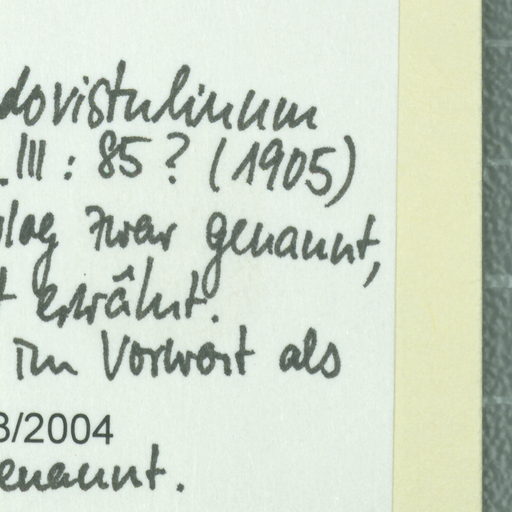 dovistulinum
. III : 85 ? (1905)
zwar genannt,
t erwähnt.
im Vorwort als
3/2004
enannt.